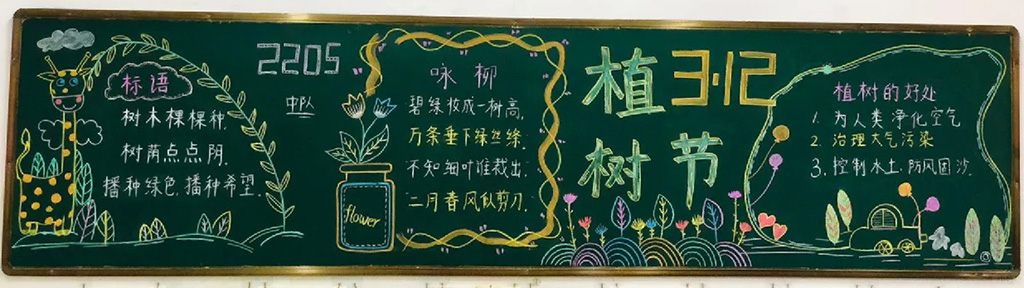 标语
树木棵棵种,
树荫点点阴.
播种绿色.播种希望.
2205
中队
flower
咏柳
碧绿妆成一树高,
万条垂下绿丝绦.
不知细叶谁裁出,
二月春风似剪刀.
植 3·12
树节
植树的好处
1. 为人类净化空气
2. 治理大气污染
3. 控制水土.防风固沙.